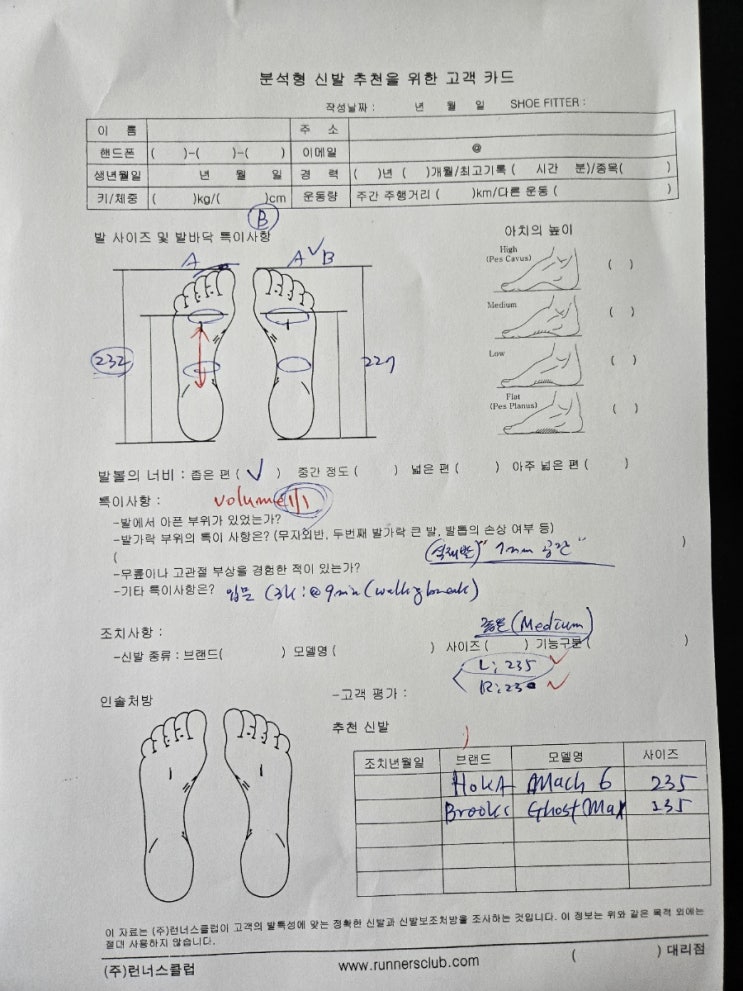 분석형 신발 추천을 위한 고객 카드
작성날짜 : 년 월 일 SHOE FITTER :
이 름 주 소
핸드폰 ( )-( )-( ) 이메일 @
생년월일 년 월 일 경 력 ( )년 ( )개월/최고기록 ( 시간 분)/종목( )
키/체중 ( )kg/( )cm 운동량 주간 주행거리 ( )km/다른 운동 ( )
B
발 사이즈 및 발바닥 특이사항 아치의 높이
A A B
High
(Pes Cavus) ( )
Medium ( )
232 227
Low ( )
Flat
(Pes Planus) ( )
발볼의 너비 : 좁은 편 ( ✓ ) 중간 정도 ( ) 넓은 편 ( ) 아주 넓은 편 ( )
특이사항 : volume
-발에서 아픈 부위가 있었는가?
-발가락 부위의 특이 사항은? (무지외반, 두번째 발가락 큰 발, 발톱의 손상 여부 등)
( "1mm 공간" )
-무릎이나 고관절 부상을 경험한 적이 있는가?
-기타 특이사항은? 입문 (3k : @ 9min (walking break)
조치사항 : (Medium)
-신발 종류 : 브랜드( ) 모델명 ( ) 사이즈 ( ) 기능구분 ( )
L: 235 ✓
R: 230 ✓
인솔처방 -고객 평가 :
추천 신발
조치년월일 브랜드 모델명 사이즈
HOKA Mach 6 235
Brooks Ghost Max 235
이 자료는 (주)런너스클럽이 고객의 발특성에 맞는 정확한 신발과 신발보조처방을 조사하는 것입니다. 이 정보는 위와 같은 목적 외에는
절대 사용하지 않습니다.
(주)런너스클럽 www.runnersclub.com ( ) 대리점